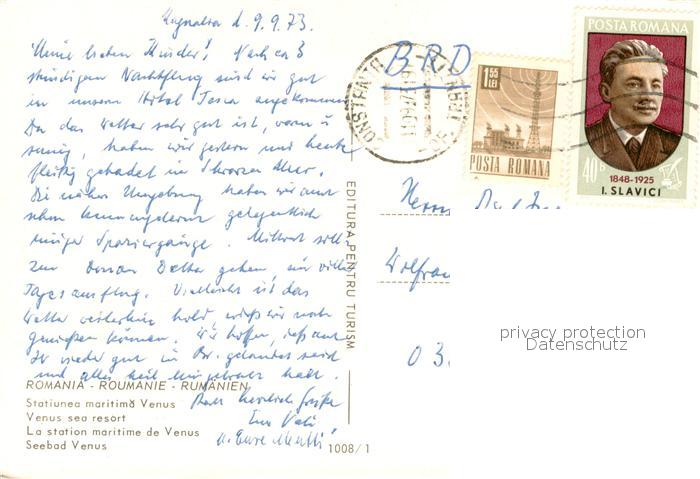 d. 9.9.73.
Meine lieben Kinder! Nach ca 3
stündigem Nachtflug sind wir gut
in unserm Hotel angekommen
Da das Wetter sehr gut ist, warm u
sonnig, haben wir gestern und heute
fleißig gebadet im Schwarzen Meer.
Die nähere Umgebung haben wir auch
schon kennengelernt gelegentlich
einiger Spaziergänge. Mittwoch soll
zum Donau Delta gehen, ein
Tagesausflug. Vielleicht ist das
Wetter weiterhin hold, daß wir noch
genießen können. Wir hoffen, daß auch
Ihr wieder gut in Br. gelandet seid
und alles heil habt.
Recht herzliche Grüße
Euer Vati
u. Eure Mutti
ROMANIA - ROUMANIE - RUMÄNIEN
Statiunea maritimă Venus
Venus sea resort
La station maritime de Venus
Seebad Venus
1008/1
EDITURA PENTRU TURISM
BRD
CONSTANTA
1,55 LEI
POSTA ROMANA
POSTA ROMANA
40 B
1848-1925
I. SLAVICI
Herrn
Wolfra
03.
privacy protection
Datenschutz